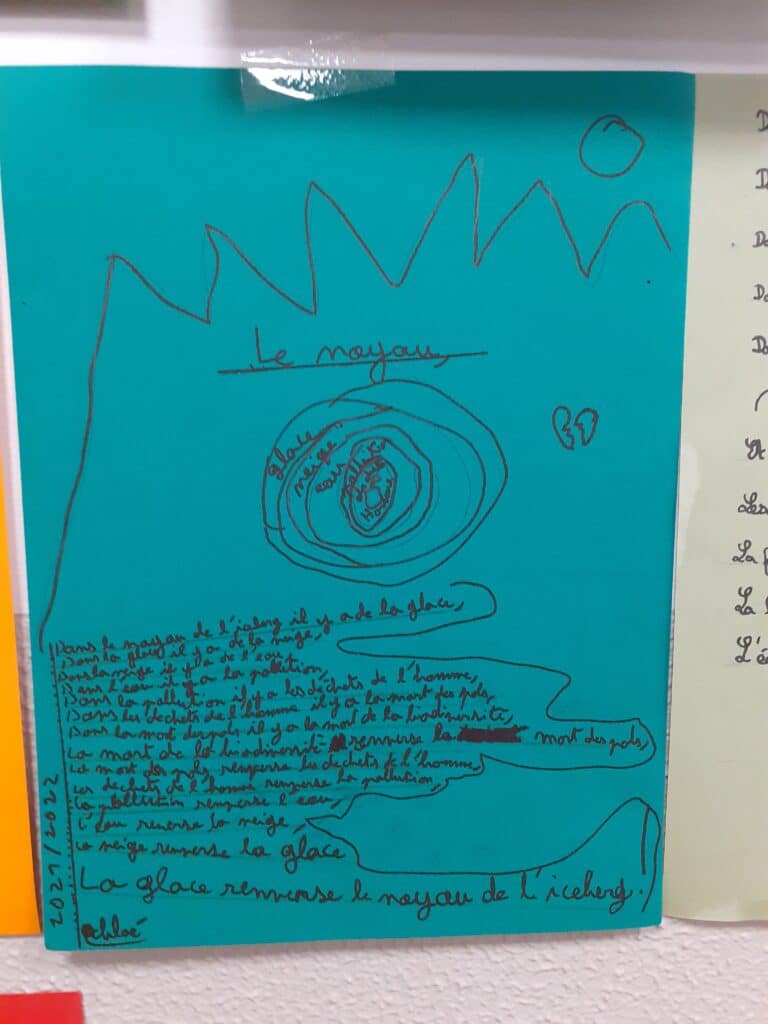 Le noyau,
glace
neige
eau
pollution
Homme
Dans le noyau de l'iceberg il y a de la glace,
Dans la glace il y a de la neige,
Dans la neige il y a de l'eau,
Dans l'eau il y a la pollution,
Dans la pollution il y a les déchets de l'homme,
Dans les déchets de l'homme il y a la mort des pols,
Dans la mort des pols il y a la mort de la biodiversité,
La mort de la biodiversité renverse la mort des pols,
La mort des pols, renverse les déchets de l'homme,
Les déchets de l'homme renverse la pollution,
La pollution renverse l'eau,
L'eau renverse la neige,
La neige renverse la glace
La glace renverse le noyau de l'iceberg.
2021/2022
chloé
D
D
Do
Do
Do
Et
Les
La
La
L'é